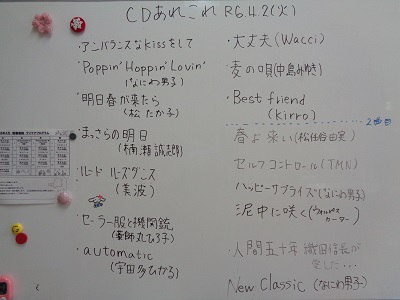 CDあれこれ R6.4.2(火)
・アンバランスなkissをして
・Poppin' Hoppin' Lovin'
(なにわ男子)
・明日春が来たら
(松 たか子)
・まっさらの明日
(楠瀬誠志郎)
(美波)
・セーラー服と機関銃
(薬師丸ひろ子)
・automatic
(宇田多ひかる)
・大丈夫(Wacci)
・麦の唄(中島みゆき)
・Best friend
(Kirro)
2回目
春よ来い(松任谷由実)
セルフコントロール(TMN)
ハッピーサプライズ(なにわ男子)
泥中に咲く(ウォルピスカーター)
・人間五十年 織田信長が
New Classic (なにわ男子)